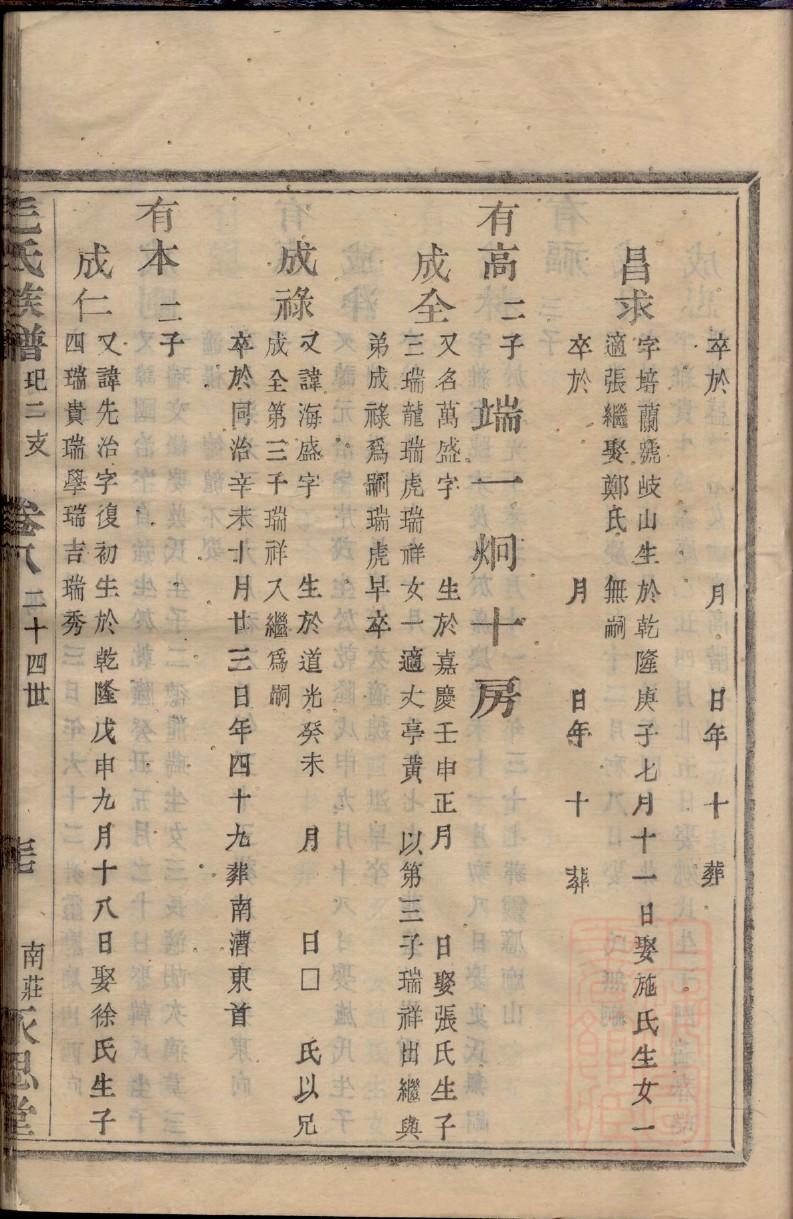 卒於 月 日年 十 葬
昌求 字培蘭號岐山生於乾隆庚子七月十一日娶施氏生女一
適張繼娶鄭氏 無嗣
卒於 月 日年 十 葬
有高 二子 端一炯十房
成全 又名萬盛字 生於嘉慶壬申正月 日娶張氏生子
三瑞龍瑞虎瑞祥女一適丈亭黃 以第三子瑞祥出繼與
弟成祿爲嗣瑞虎早卒
成祿 又諱海盛字 生於道光癸未 月 日□ 氏以兄
成全第三子瑞祥入繼爲嗣
卒於同治辛未十月廿三日年四十九葬南漕東首
有本 二子
成仁 又諱先治字復初生於乾隆戊申九月十八日娶徐氏生子
四瑞貴瑞學瑞吉瑞秀
毛氏族譜 玘二支 卷八 二十四世 南莊 永思堂